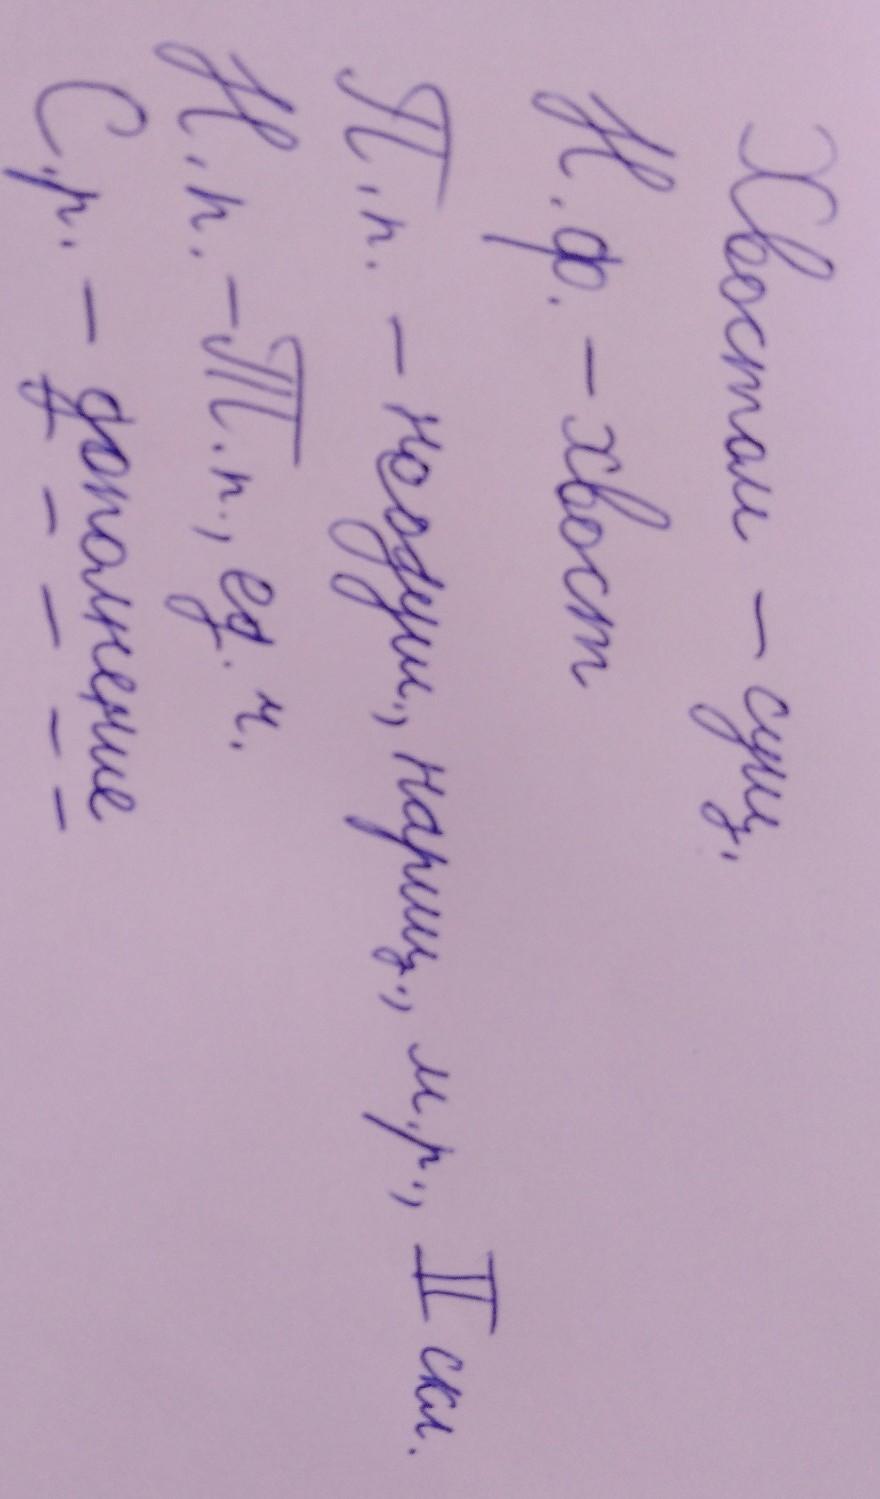 Хвостом – сущ.
Н.ф. – хвост
П.п. – неодуш., нариц., м.р., II скл.
Н.п. – Т.п., ед. ч.
С.р. – дополнение